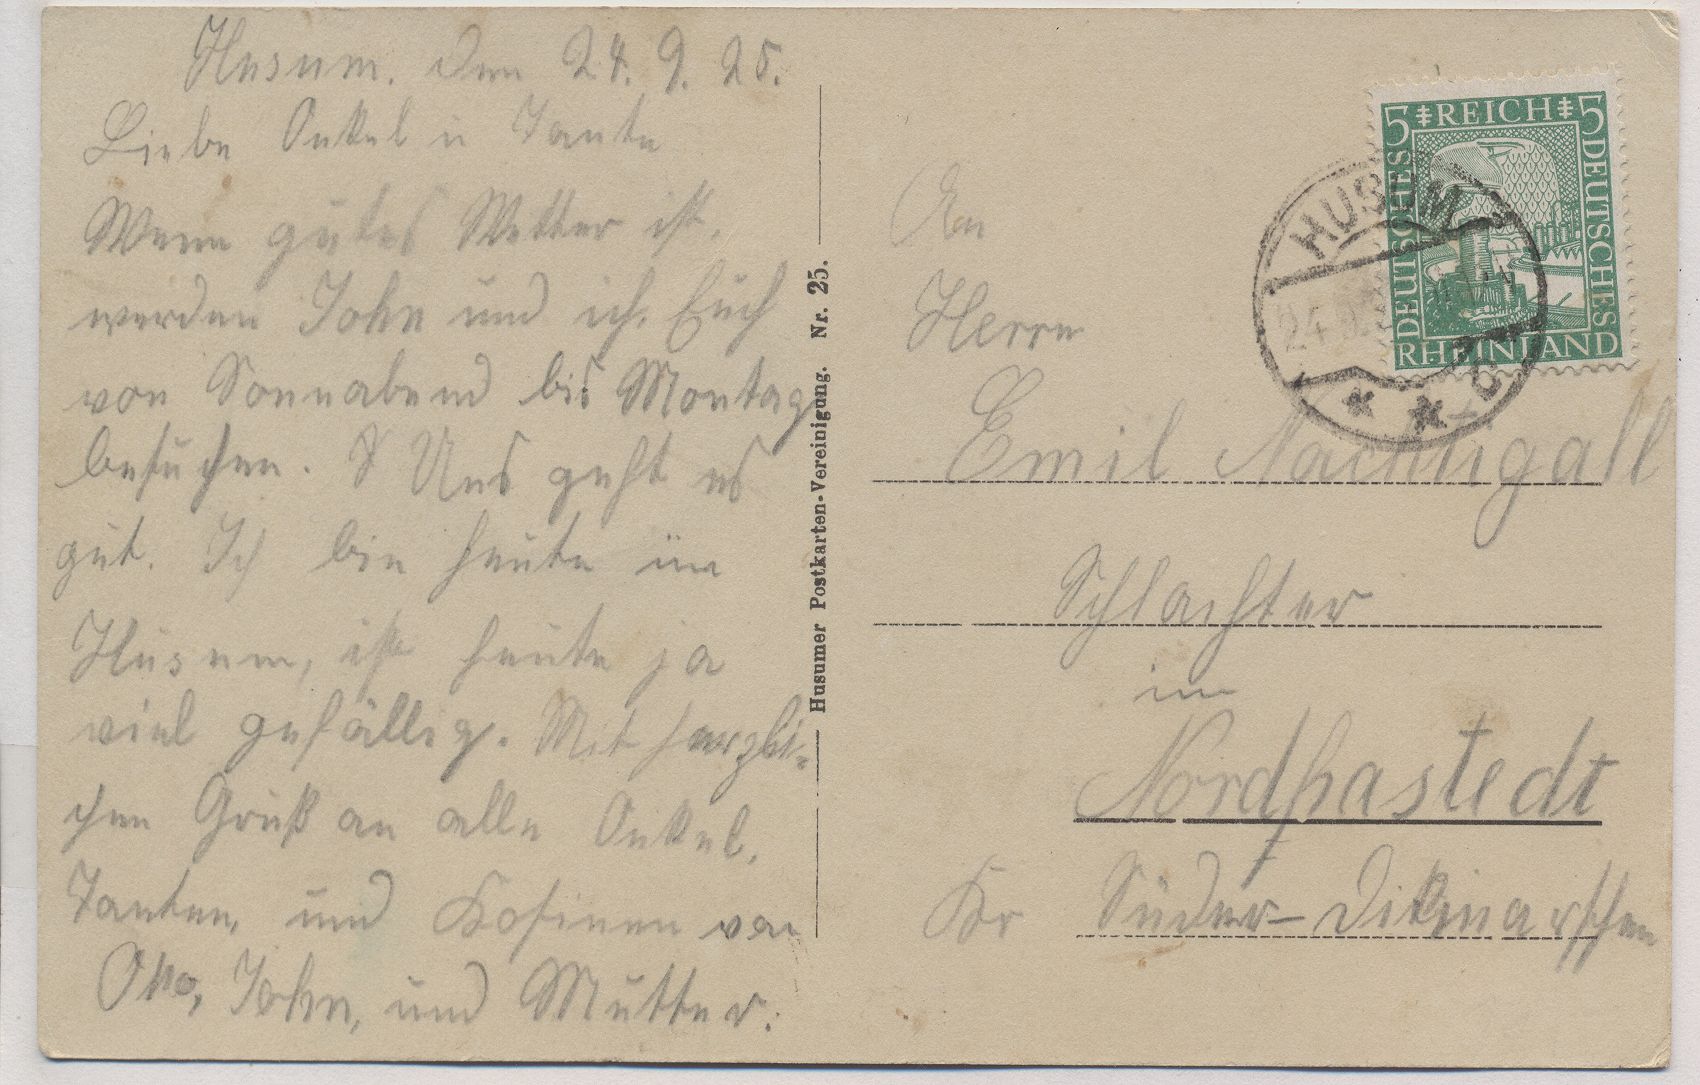 Husum. den 24. 9. 25.
Liebe Onkel u Tante
Wenn gutes Wetter ist,
werden John und ich, Euch
von Sonnabend bis Montag
besuchen. Uns geht es
gut. Ich bin heute in
Husum, ist heute ja
viel gefällig. Mit herzli-
chen Gruß an alle Onkel,
Tanten, und Kosinen von
Otto, John, und Mutter.
Husumer Postkarten-Vereinigung. Nr. 25.
5 REICH 5
DEUTSCHES
DEUTSCHES
RHEINLAND
HUSUM
24.9.
An
Herrn
Emil Nachtigall
Schlachter
in
Nordhastedt
Kr Süder-Ditmarschen